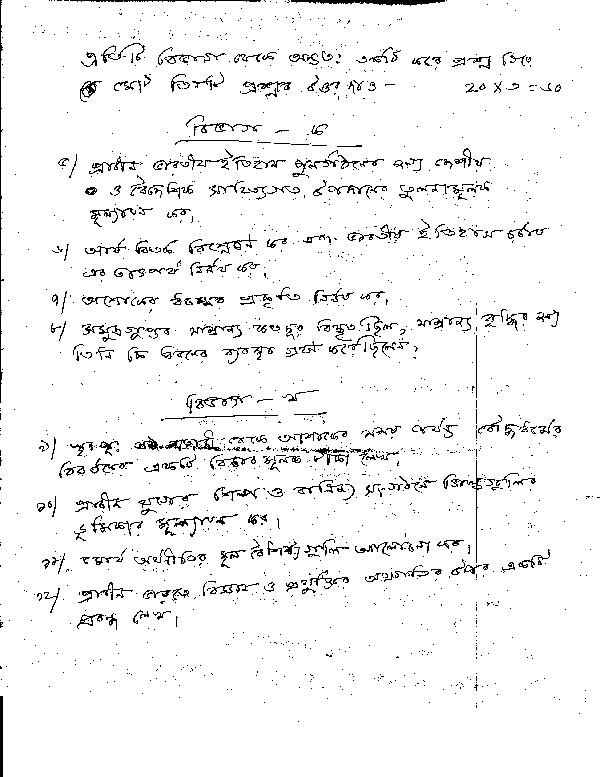 প্রতিটি বিভাগ থেকে অন্ততঃ একটি করে প্রশ্ন নিয়ে
মোট তিনটি প্রশ্নের উত্তর দাও – 20 X ৩ = ৬০
বিভাগ – ক
৫/ প্রাচীন ভারতীয় ইতিহাস পুনর্গঠনের জন্য দেশীয়
ও বৈদেশিক সাহিত্যগত উপাদানের তুলনামূলক
মূল্যায়ন কর।
৬/ আর্য বিতর্ক বিশ্লেষণ কর এবং ভারতীয় ইতিহাস চর্চায়
এর তাৎপর্য নির্ণয় কর।
৭/ অশোকের ধম্মের প্রকৃতি নির্ণয় কর।
৮/ সমুদ্রগুপ্তের সাম্রাজ্য কতদূর বিস্তৃত ছিল, সাম্রাজ্য বৃদ্ধির জন্য
তিনি কি ধরনের ব্যবস্থা গ্রহণ করেছিলেন?
বিভাগ – খ
৯/ খৃঃ পূঃ থেকে অশোকের সময় পর্যন্ত বৌদ্ধধর্মের
বিবর্তনের একটি লেখ।
১০/ প্রাচীন যুগের শিল্প ও বাণিজ্য সংগঠনে গিল্ডগুলির
ভূমিকার মূল্যায়ন কর।
১১/ মৌর্য অর্থনীতির মূল বৈশিষ্ট্যগুলি আলোচনা কর।
১২/ প্রাচীন ভারতে বিজ্ঞান ও প্রযুক্তিবিদ্যার অগ্রগতির উপর একটি
প্রবন্ধ লেখ।